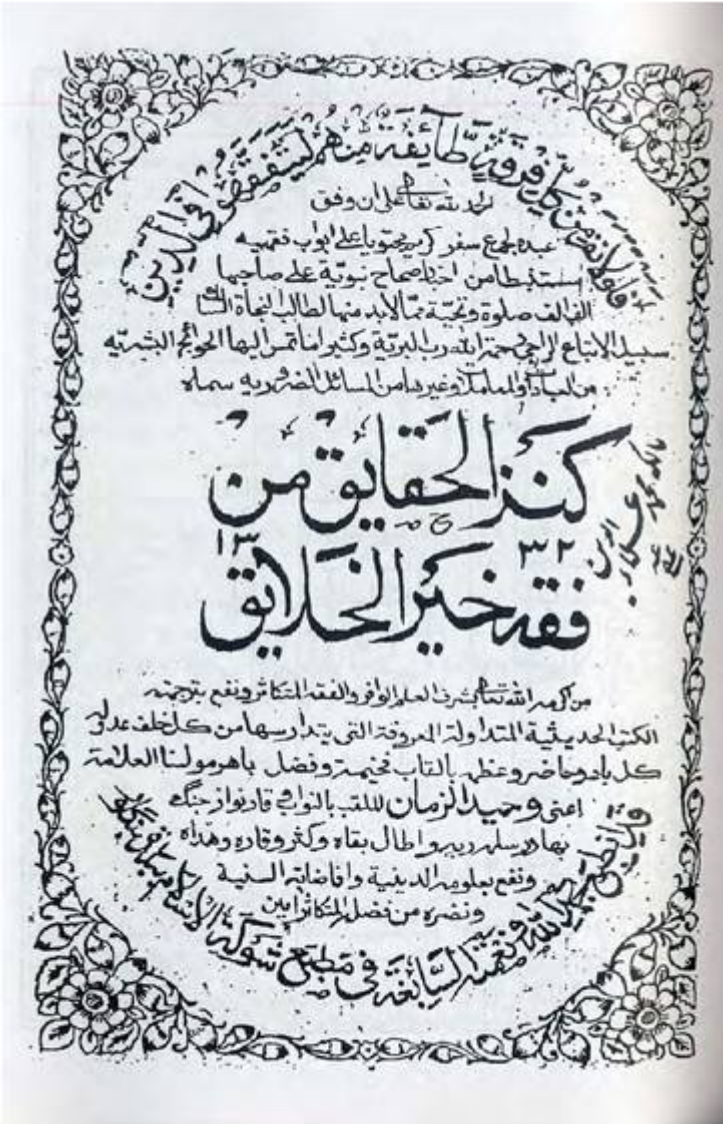 فلولا نفر من كل فرقة طآئفة منهم ليتفقهوا في الدين
لله تعالى على ان وفق
عبده لجمع سفر كريم يحتوي على ابواب فقهيه
استنبطها من اخبار صحاح نبوية على صاحبها
الف الف صلوة وتحية مما لابد منها لطالب النجاة
سبيل الاتباع الراجي رحمة الله رب البرية وكثيرا ما تمس اليها الحوائج البشريه
من العبادات والمعاملات وغيرها من المسائل الضروريه سماه
كنز الحقايق من
١٣ ٣٢
فقه خير الخلايق
من اكرمه الله تعالى بشرف العلم الوافر والفقه المتكاثر ونفع بترجمته
الكتب الحديثية المتداولة المعروفة التي يتدارسها من كل خلف عدله
كل باد وحاضر وعظم بالقاب فخيمة وفضل باهر مولنا العلامة
اعنى وحيد الزمان الملقب بالنواب وقار نواز جنگ
بهادر سلمه ربه واطال بقاه وكثر وقاره وهداه
ونفع بعلومه الدينية وافاضاته السنية
ونصره من فضله المتكاثر امين
الله ونعمته السابغة في مطبع شوكة الاسلام